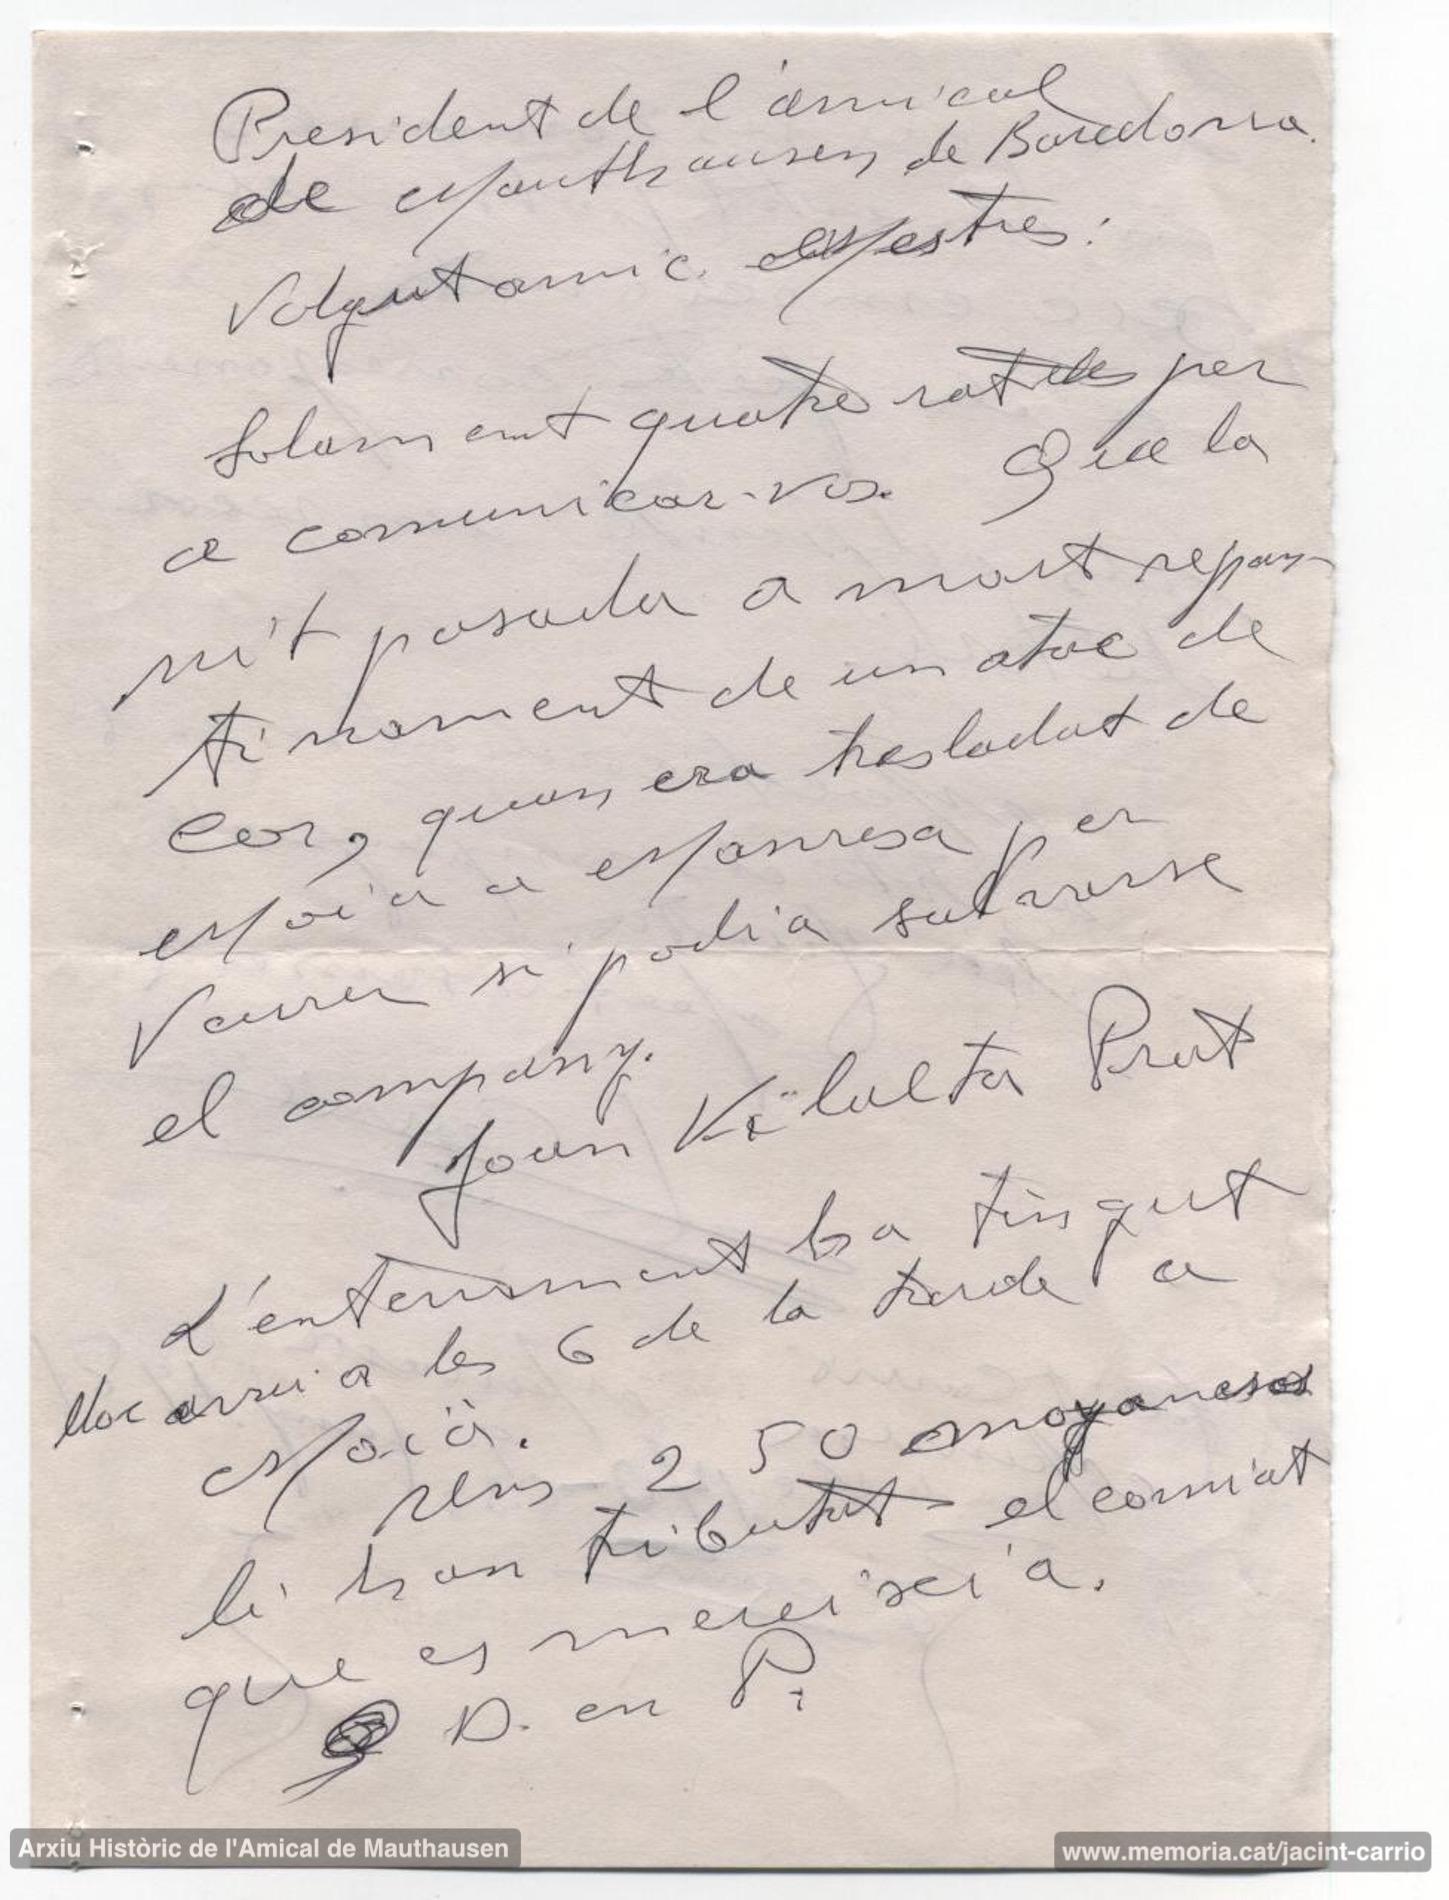 President de l'amical
de Mauthausen, de Barcelona.
Volgut amic. Mestres:
Solament quatre ratles per
a comunicar-vos. Que la
nit pasada a mort repen-
tinament de un atac de
Cor, quan, era traslladat de
Moià a Manresa per
Veurer si podia salvarse
el company.
Joan Vilalta Prat
L'enterrament ha tingut
lloc avui a les 6 de la tarde a
Moià.
Uns 250 moyanesos
li han tributat el comiat
que es mereixia.
D. en P.
Arxiu Històric de l'Amical de Mauthausen
www.memoria.cat/jacint-carrio